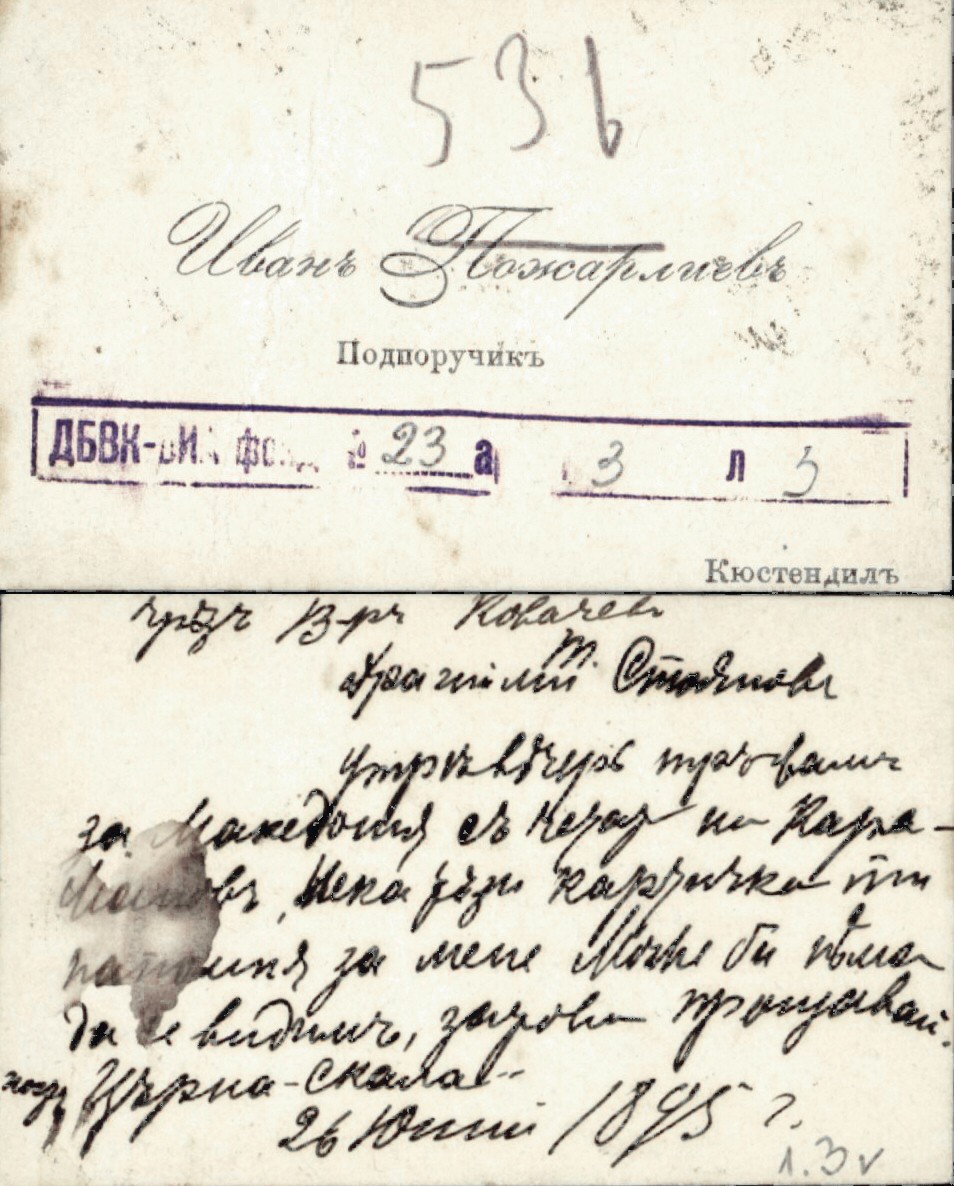 536
Иванъ Пожарлиевъ
Подпоручикъ
ДБВК-ВИА фонд № 23 а 3 л 3
Кюстендилъ
чрѣзъ В-ръ Ковачевъ
Драгий ми Т. Стояновъ
утрѣ вѣчеръ тръгвамъ
за Македония съ четата на Кара-
Мановъ, Нека тѣзи картичка ти
напомня за мене Може би нѣма
да се видимъ, затова прощавай.
Църна-скала
26 Юний 1895 г.
1.3 v